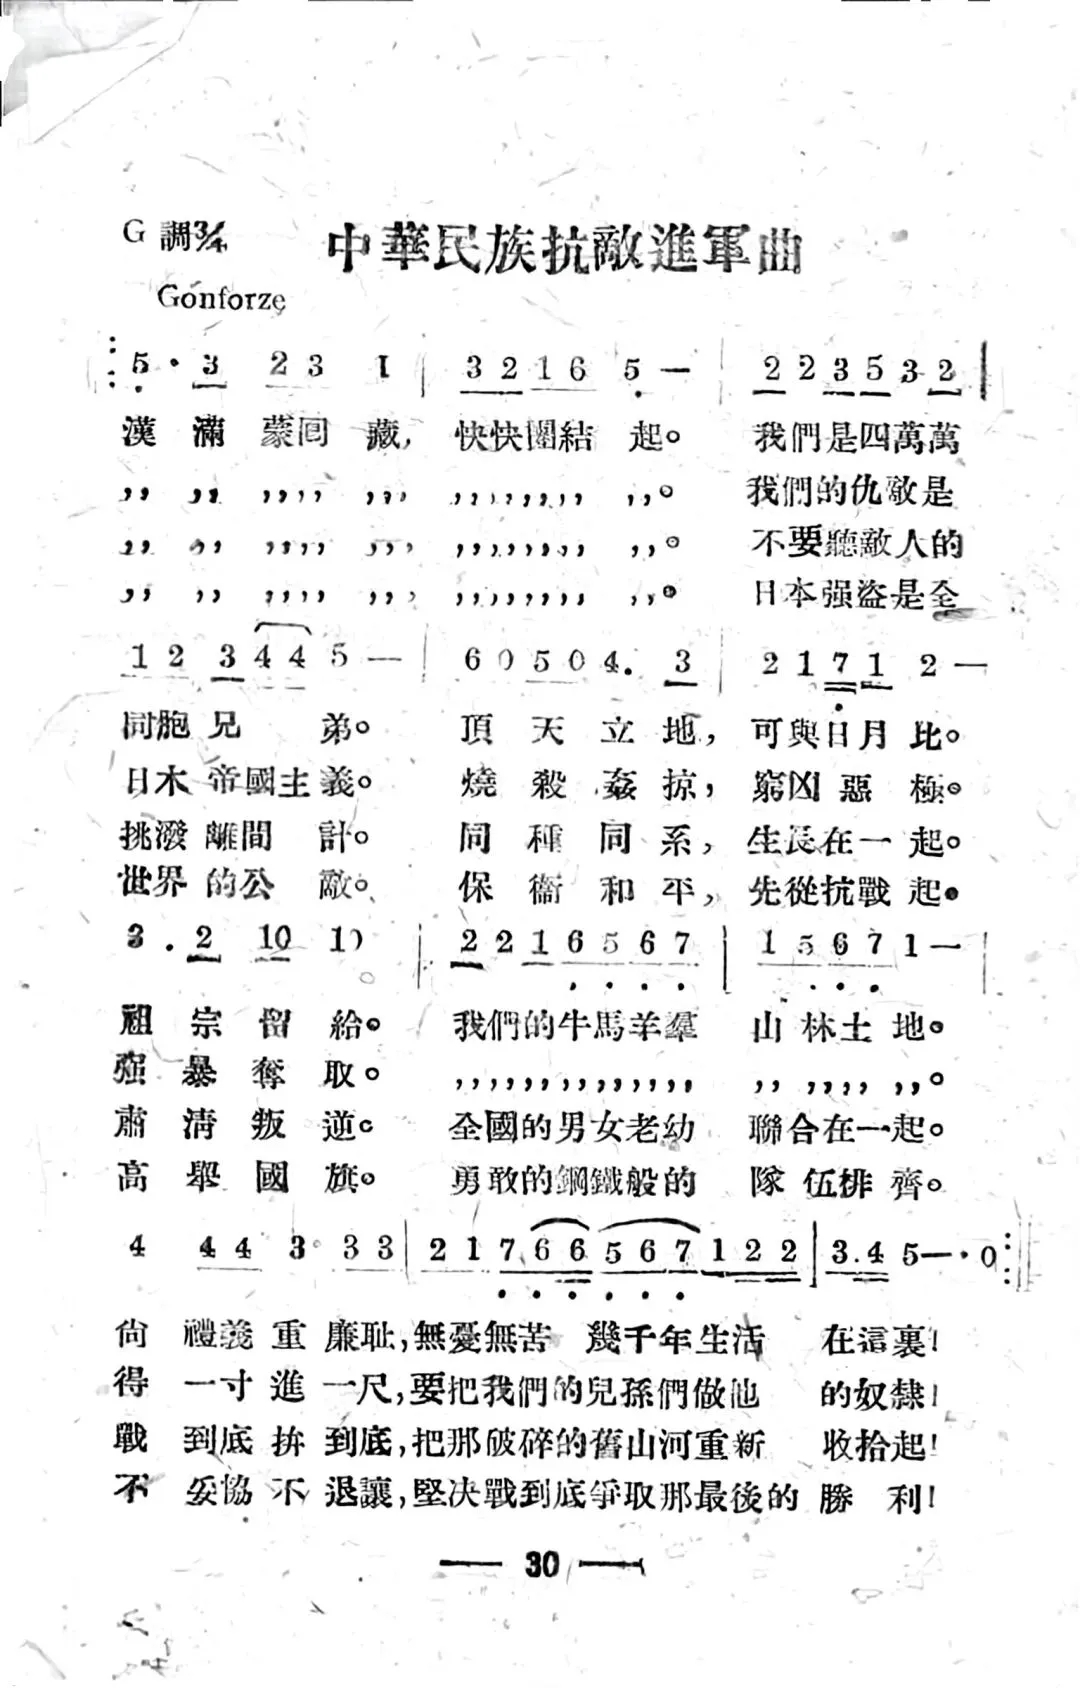 G調3/4
中華民族抗敵進軍曲
Gonforze
5 · 3 2 3 1 | 3 2 1 6 5 — | 2 2 3 5 3 2 |
漢 滿 蒙回 藏, 快快團結 起。 我們是四萬萬
,, ,, ,,,, ,,, ,,,,,,,, ,,。 我們的仇敵是
,, ,, ,,,, ,,, ,,,,,,,, ,,。 不要聽敵人的
,, ,, ,,,, ,,, ,,,,,,,, ,,。 日本强盜是全
1 2 3 4 4 5 — | 6 0 5 0 4. 3 | 2 1 7 1 2 —
同胞 兄 弟。 頂 天 立 地, 可與日月 比。
日木 帝國主義。 燒 殺 姦 掠, 窮凶 惡 極。
挑潑 離間 計。 同 種 同 系, 生長在一 起。
世界 的公 敵。 保 衞 和 平, 先從抗戰 起。
3 . 2 10 1) | 2 2 1 6 5 6 7 | 1 5 6 7 1 — |
祖 宗 留 給。 我們的牛馬羊羣 山 林土 地。
强 暴 奪 取。 ,,,,,,,,,,,,,, ,, ,,,, ,,。
肅 清 叛 逆。 全國的男女老幼 聯合在一起。
高 舉 國 旗。 勇敢的鋼鐵般的 隊 伍排 齊。
4 4 4 3 3 3 | 2 1 7 6 6 5 6 7 1 2 2 | 3.4 5 — · 0
尙 禮義 重 廉耻, 無憂無苦 幾千年生活 在這裏!
得 一寸 進 一尺, 要把我們的兒孫們做他 的奴隸!
戰 到底 拚 到底, 把那破碎的舊山河重新 收拾起!
不 妥協 不 退讓, 堅决戰到底爭取那最後的 勝 利!
— 30 —